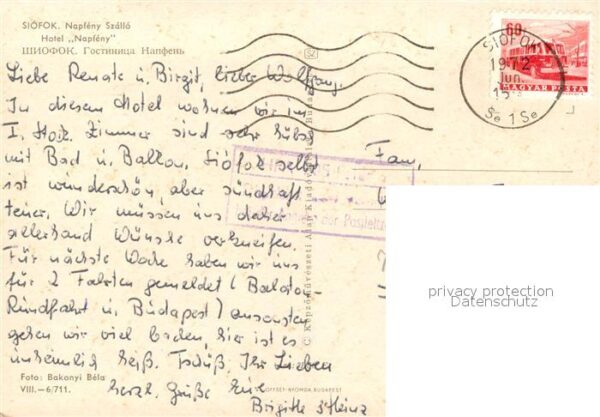 SIÓFOK. Napfény Szálló
Hotel „Napfény"
ШИОФОК. Гостиница Напфень
Liebe Renate u. Birgit, lieber Wolfgang,
In diesem Hotel wohnen wir im
I. Stock. Zimmer sind sehr hübsch
mit Bad u. Balkon. Siófok selbst
ist wunderschön, aber sündhaft
teuer. Wir müssen uns daher
allerhand Wünsche verkneifen.
Für nächste Woche haben wir uns
für 2 Fahrten gemeldet (Balaton-
Rundfahrt u. Budapest) ansonsten
gehen wir viel baden, hier ist es
unheimlich heiß. Tschüß, Ihr Lieben
herzl. Grüße Eure
Brigitte & Heinz
Foto: Bakonyi Béla
VIII.—6/711.
OFFSET-NYOMDA, BUDAPEST
© Képzőművészeti Alap Kiadó
60
MAGYAR POSTA
SIÓFOK
1972
Jun.
Fam.
privacy protection
Datenschutz